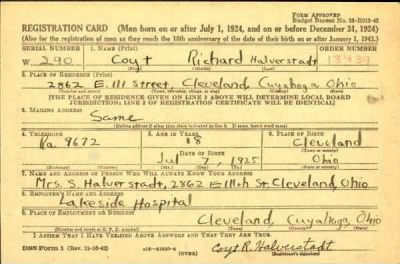 FORM APPROVED
REGISTRATION CARD (Men born on or after July 1, 1924, and on or before December 31, 1924)
(Also for the registration of men as they reach the 18th anniversary of the date of their birth on or after January 1, 1943.)
SERIAL NUMBER 1. NAME (Print) ORDER NUMBER
W 290 Coyt Richard Halverstadt 13439
2. PLACE OF RESIDENCE (Print)
2862 E. 111 Street Cleveland, Cuyahoga Ohio
[THE PLACE OF RESIDENCE GIVEN ON LINE 2 ABOVE WILL DETERMINE LOCAL BOARD
JURISDICTION; LINE 2 OF REGISTRATION CERTIFICATE WILL BE IDENTICAL]
3. MAILING ADDRESS
Same
4. TELEPHONE 5. AGE IN YEARS 6. PLACE OF BIRTH
Ra. 9672 18 Cleveland
DATE OF BIRTH
Jul 7, 1925 Ohio
7. NAME AND ADDRESS OF PERSON WHO WILL ALWAYS KNOW YOUR ADDRESS
Mrs. S. Halverstadt, 2862 E 111th St. Cleveland, Ohio
Lakeside Hospital
9. PLACE OF EMPLOYMENT OR BUSINESS
Cleveland, Cuyahoga, Ohio
I AFFIRM THAT I HAVE VERIFIED ABOVE ANSWERS AND THAT THEY ARE TRUE.
DSS Form 1 (OVER) Coyt R. Halverstadt